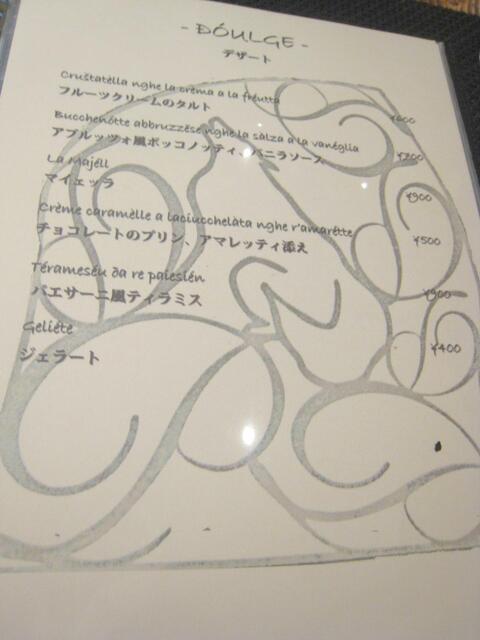 - DÓULGE -
デザート
Cruštatèlla nghe la crèma a la fréutta
フルーツクリームのタルト ¥600
Bucchenòtte abbruzzése nghe la sàlza a la vanéglia
アブルッツォ風ボッコノッティ、バニラソース ¥700
La Majèll
マイェッラ ¥900
Crème caramèlle a laciucchelàta nghe r'amarétte
チョコレートのプリン、アマレッティ添え ¥500
Térameséu ða re paiesién
パエサーニ風ティラミス ¥900
Geliéte
ジェラート ¥400